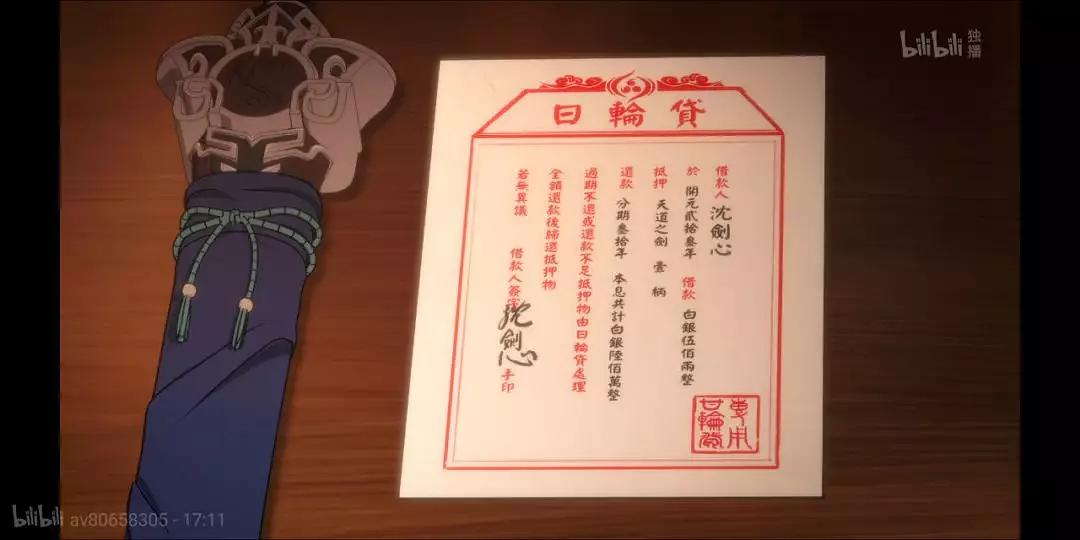 bilibili 独播
日輪貸
借款人 沈劍心
於 開元貳拾叁年 借款 白銀伍佰兩整
抵押 天道之劍 壹柄
還款 分期叁拾年 本息共計白銀陸佰萬整
過期不還或還款不足抵押物由日輪貸處理
全額還款後歸還抵押物
若無異議 借款人簽字 沈劍心 手印
專用
日輪貸
bilibili av80658305 - 17:11